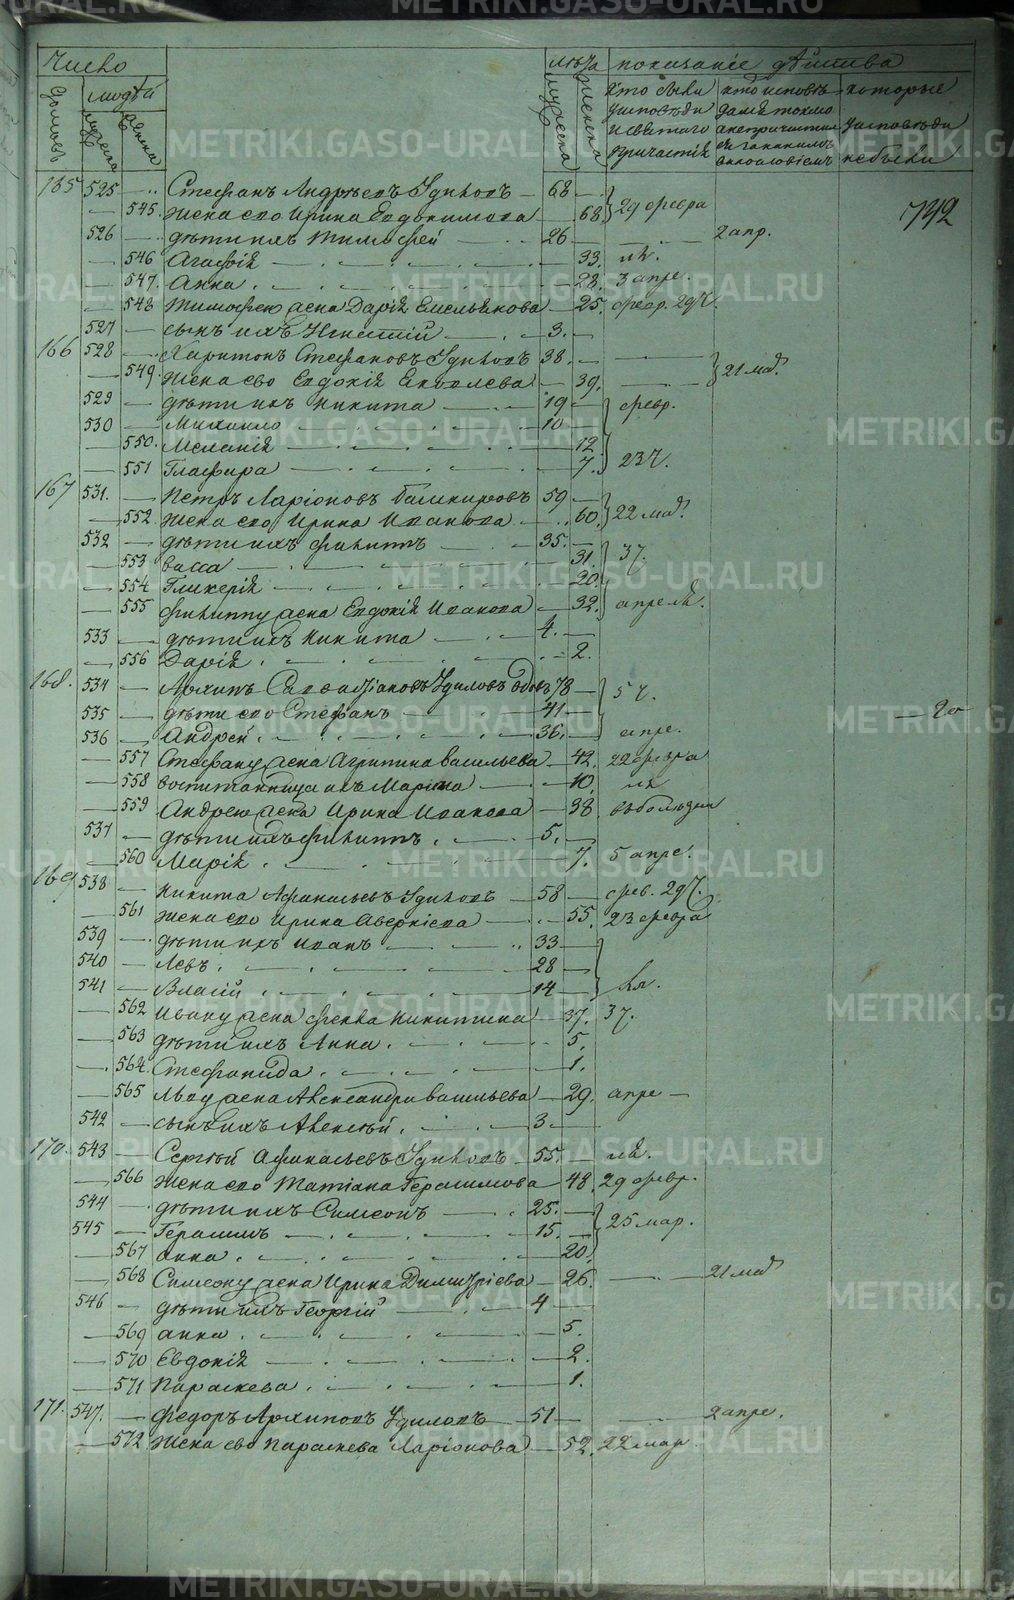 Число
домовъ
людей
мужеска
женска
лѣта
мужеска
женска
показаніе дѣйства
кто были у исповѣди и святаго причастія
кто исповѣдался токмо а не причастился и за какимъ винословіемъ
которые у исповѣди не были
742
165 525 Стефанъ Андреевъ 68
545 жена его Ирина Евдокимова 68 29 февра
526 дѣти ихъ Тимофей 26 2 апр.
546 Агафія 33
547 Анна 28. 3 апре.
548 Тимофею жена Дарія Емельянова 25. февр. 29 ч.
527 сынъ ихъ 3.
166 528 Харитонъ Стефановъ 38.
549 жена его Евдокія Яковлева 39. 21 ма
529 дѣти ихъ Никита 19 февр.
530 Михаило 10
550 Меланія 12
551 Глафира 7. 23 ч.
167 531. Петръ Ларіоновъ Башкировъ 59
552 жена его Ирина Иванова 60. 22 ма
532 дѣти ихъ Филиппъ 35.
553 Васса 31. 3 ч.
554 Гликерія 20.
555 Филиппу жена Евдокія Иванова 32. апреля.
533 дѣти ихъ Никита 4.
556 Дарія 2.
168. 534 Архипъ вдовъ 78 5 ч.
535 дѣти его Стефанъ 41
536 Андрей 36. апре.
557 Стефану жена Агрипина Васильева 42. 22 февра
558 воспитанница ихъ Марина 10.
559 Андрею жена Ирина Иванова 38.
537 дѣти ихъ Филиппъ 5.
560 Марія 7. 5 апре.
169 538 Никита Афанасьевъ 58 фев. 29 ч.
561 жена его Ирина Аверкіева 55. 23 февра
539 дѣти ихъ Иванъ 33
540 Левъ 28
541 Власій 14
562 Ивану жена Фекла Никитина 37. 3 ч.
563 дѣти ихъ Анна 5.
564 Стефанида 1.
565 Льву жена Александра Васильева 29. апре
542 сынъ ихъ Алексѣй 3
170. 543 Сергѣй Афанасьевъ 55.
566 жена его Татіана Герасимова 48. 29 февр.
544 дѣти ихъ Симеонъ 25. 25 мар.
545 Герасимъ 15.
567 Анна 20.
568 Симеону жена Ирина Димитріева 26. 21 ма
546 дѣти ихъ Георгій 4
569 Анна 5.
570 Евдокія 2.
571 Параскева 1.
171. 547. Федоръ Архиповъ 51 2 апре.
572 жена его Параскева Ларіонова 52. 22 мар
METRIKI.GASO-URAL.RU